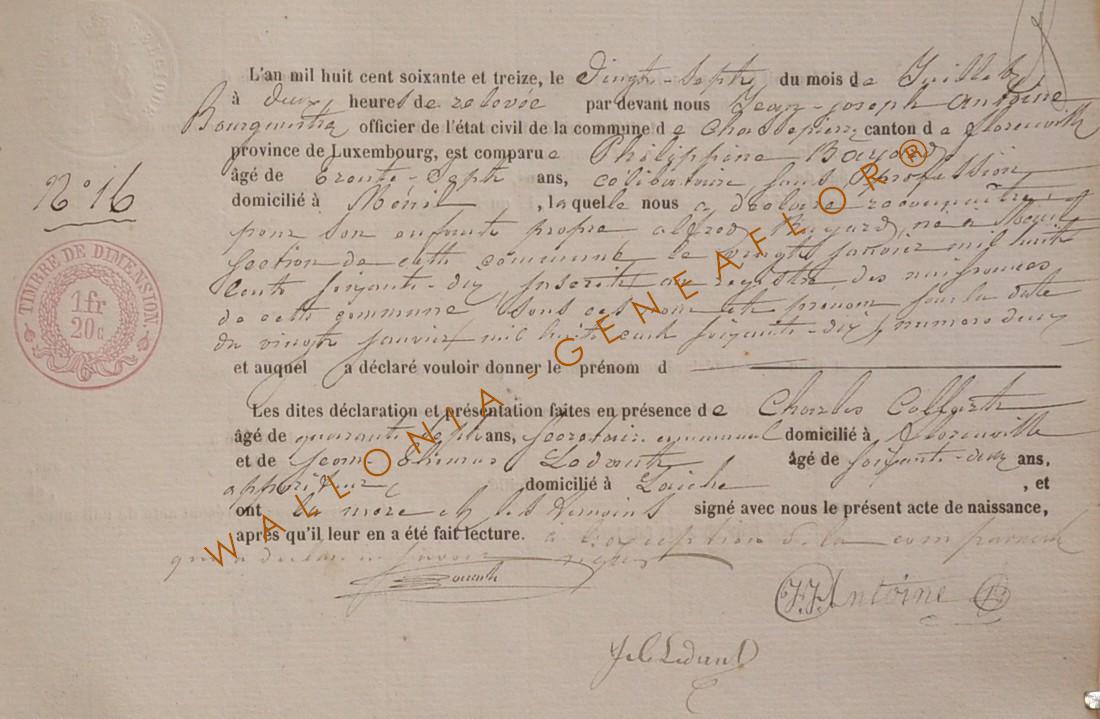 L'an mil huit cent soixante et treize, le Vingt-Sept du mois de Juillet
à deux heures de relevée par devant nous Jean-Joseph Antoine
Bourgmestre officier de l'état civil de la commune de Chassepierre canton de Florenville
province de Luxembourg, est comparue Philippine Bayard
N° 16
âgé de trente-sept ans, célibataire, sans profession
domicilié à Ménil, laquelle nous a déclaré reconnaître
pour son enfant propre alfred Bayard, né à Menil
section de cette commune le vingt janvier mil huit
cent soixante-dix, inscrit au registre des naissances
de cette commune sous ces nom et prénom sous la date
du vingt janvier mil huit cent soixante-dix, numero deux
TIMBRE DE DIMENSION.
1 fr
20 c
et auquel a déclaré vouloir donner le prénom d
Les dites déclaration et présentation faites en présence de Charles Collard
âgé de quarante sept ans, secrétaire communal domicilié à Florenville
et de Jean- Ledant âgé de soixante-deux ans,
appariteur domicilié à Laiche, et
ont la mère et les témoins signé avec nous le présent acte de naissance,
après qu'il leur en a été fait lecture. à l'exception de la comparante
qui a déclaré ne savoir signer
J.J. Antoine
WALLONIA-GENEAFLOR®